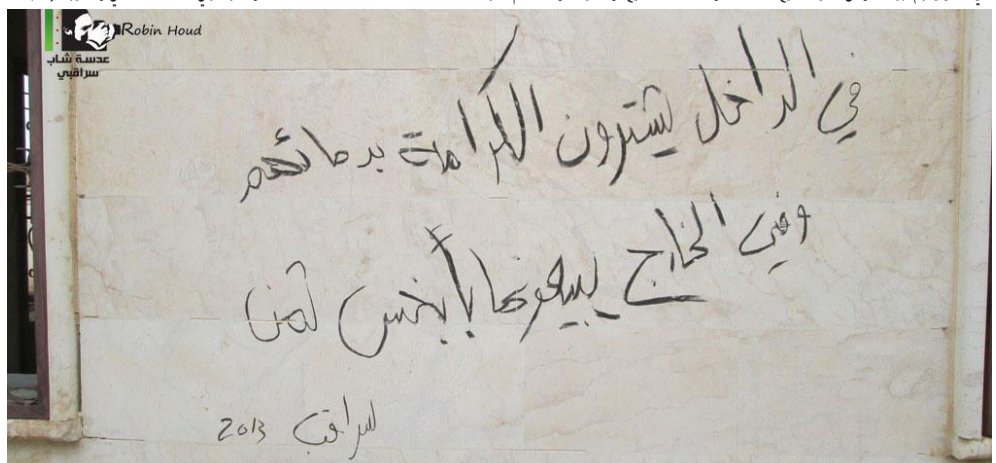 Robin Houd
عدسة شاب
سراقبي
في الداخل يشترون الكرامة بدمائهم
وفي الخارج يبيعونها بأبخس ثمن
سراقب 2013